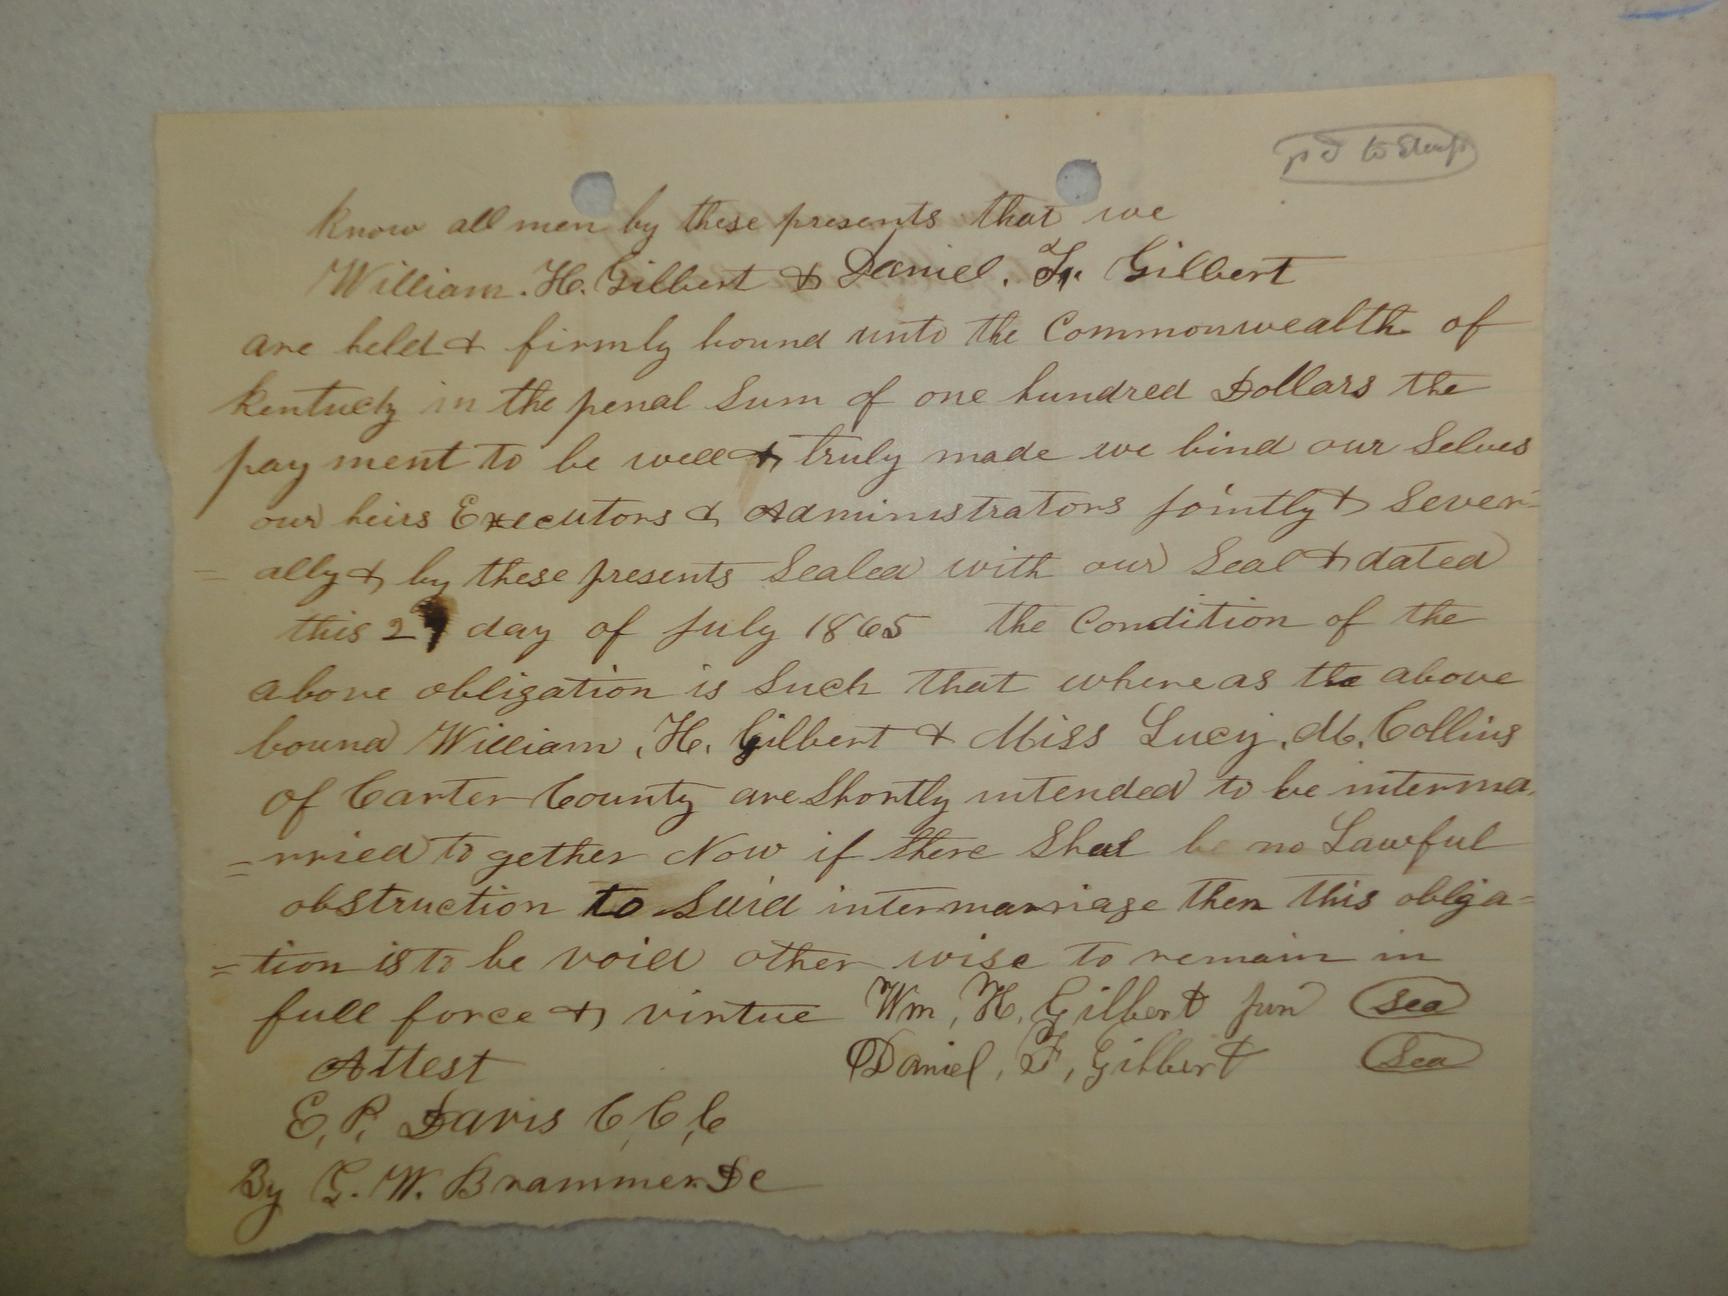 pd to
know all men by these presents that we
William. H. Gilbert & Daniel. F. Gilbert
are held & firmly bound unto the Commonwealth of
Kentucky in the penal Sum of one hundred Dollars the
pay ment to be well & truly made we bind our Selves
our heirs Executors & Administrators jointly & Sever-
= ally & by these presents Sealed with our Seal & dated
this 27 day of July 1865 the Condition of the
above obligation is Such that where as the above
bound William, H. Gilbert & Miss Lucy, M, Collins
of Carter County are Shortly intended to be interma-
= rried to gether Now if there Shal be no Lawful
obstruction to Said intermarriage then this obliga=
= tion is to be void other wise to remain in
full force & virtue Wm, H, Gilbert jun Sea
Attest Daniel, F, Gilbert Sea
E, P, Davis C, C, C
By G. W. Brammer De